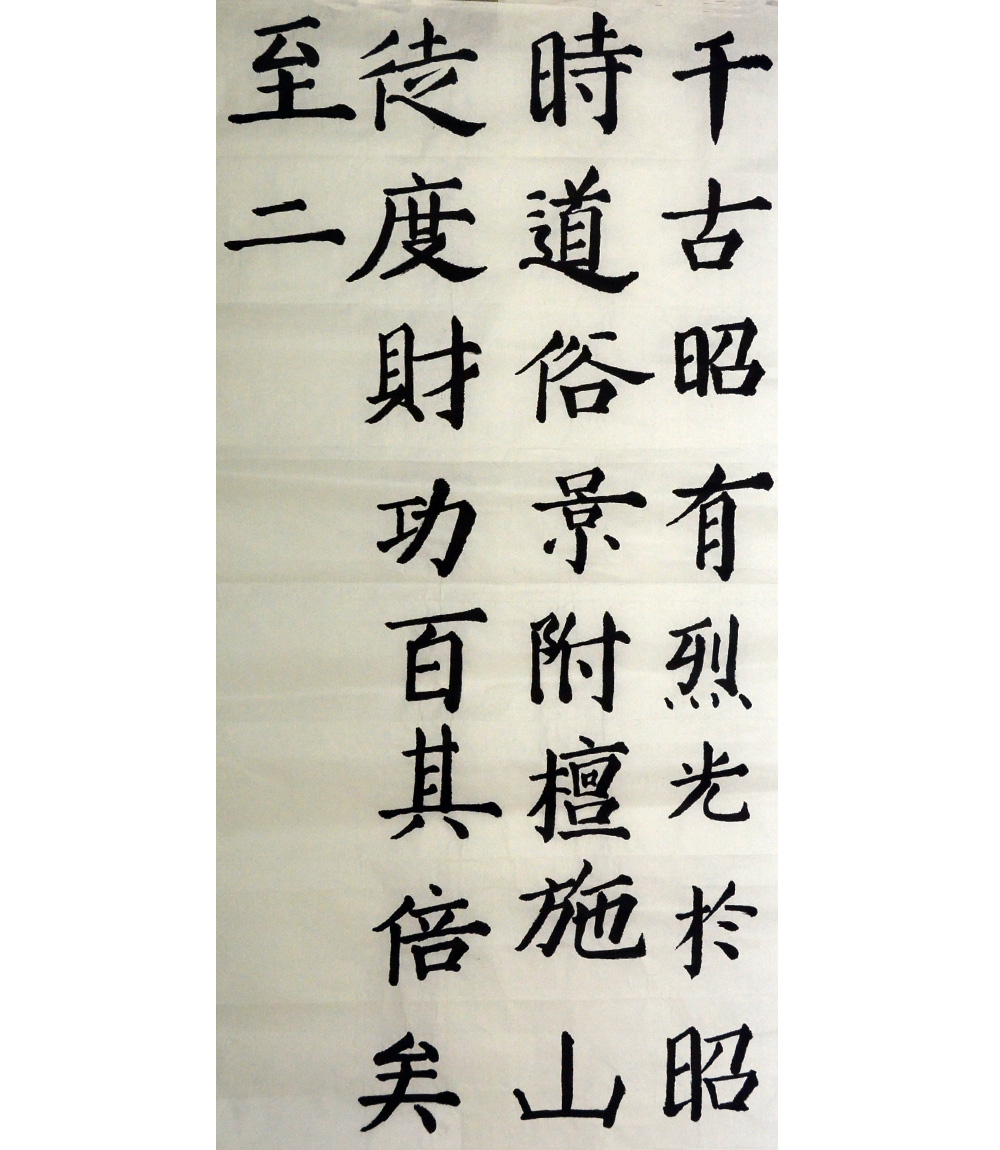 千古昭有烈光於昭
時道俗景附檀施山
徒度財功百其倍矣
至二